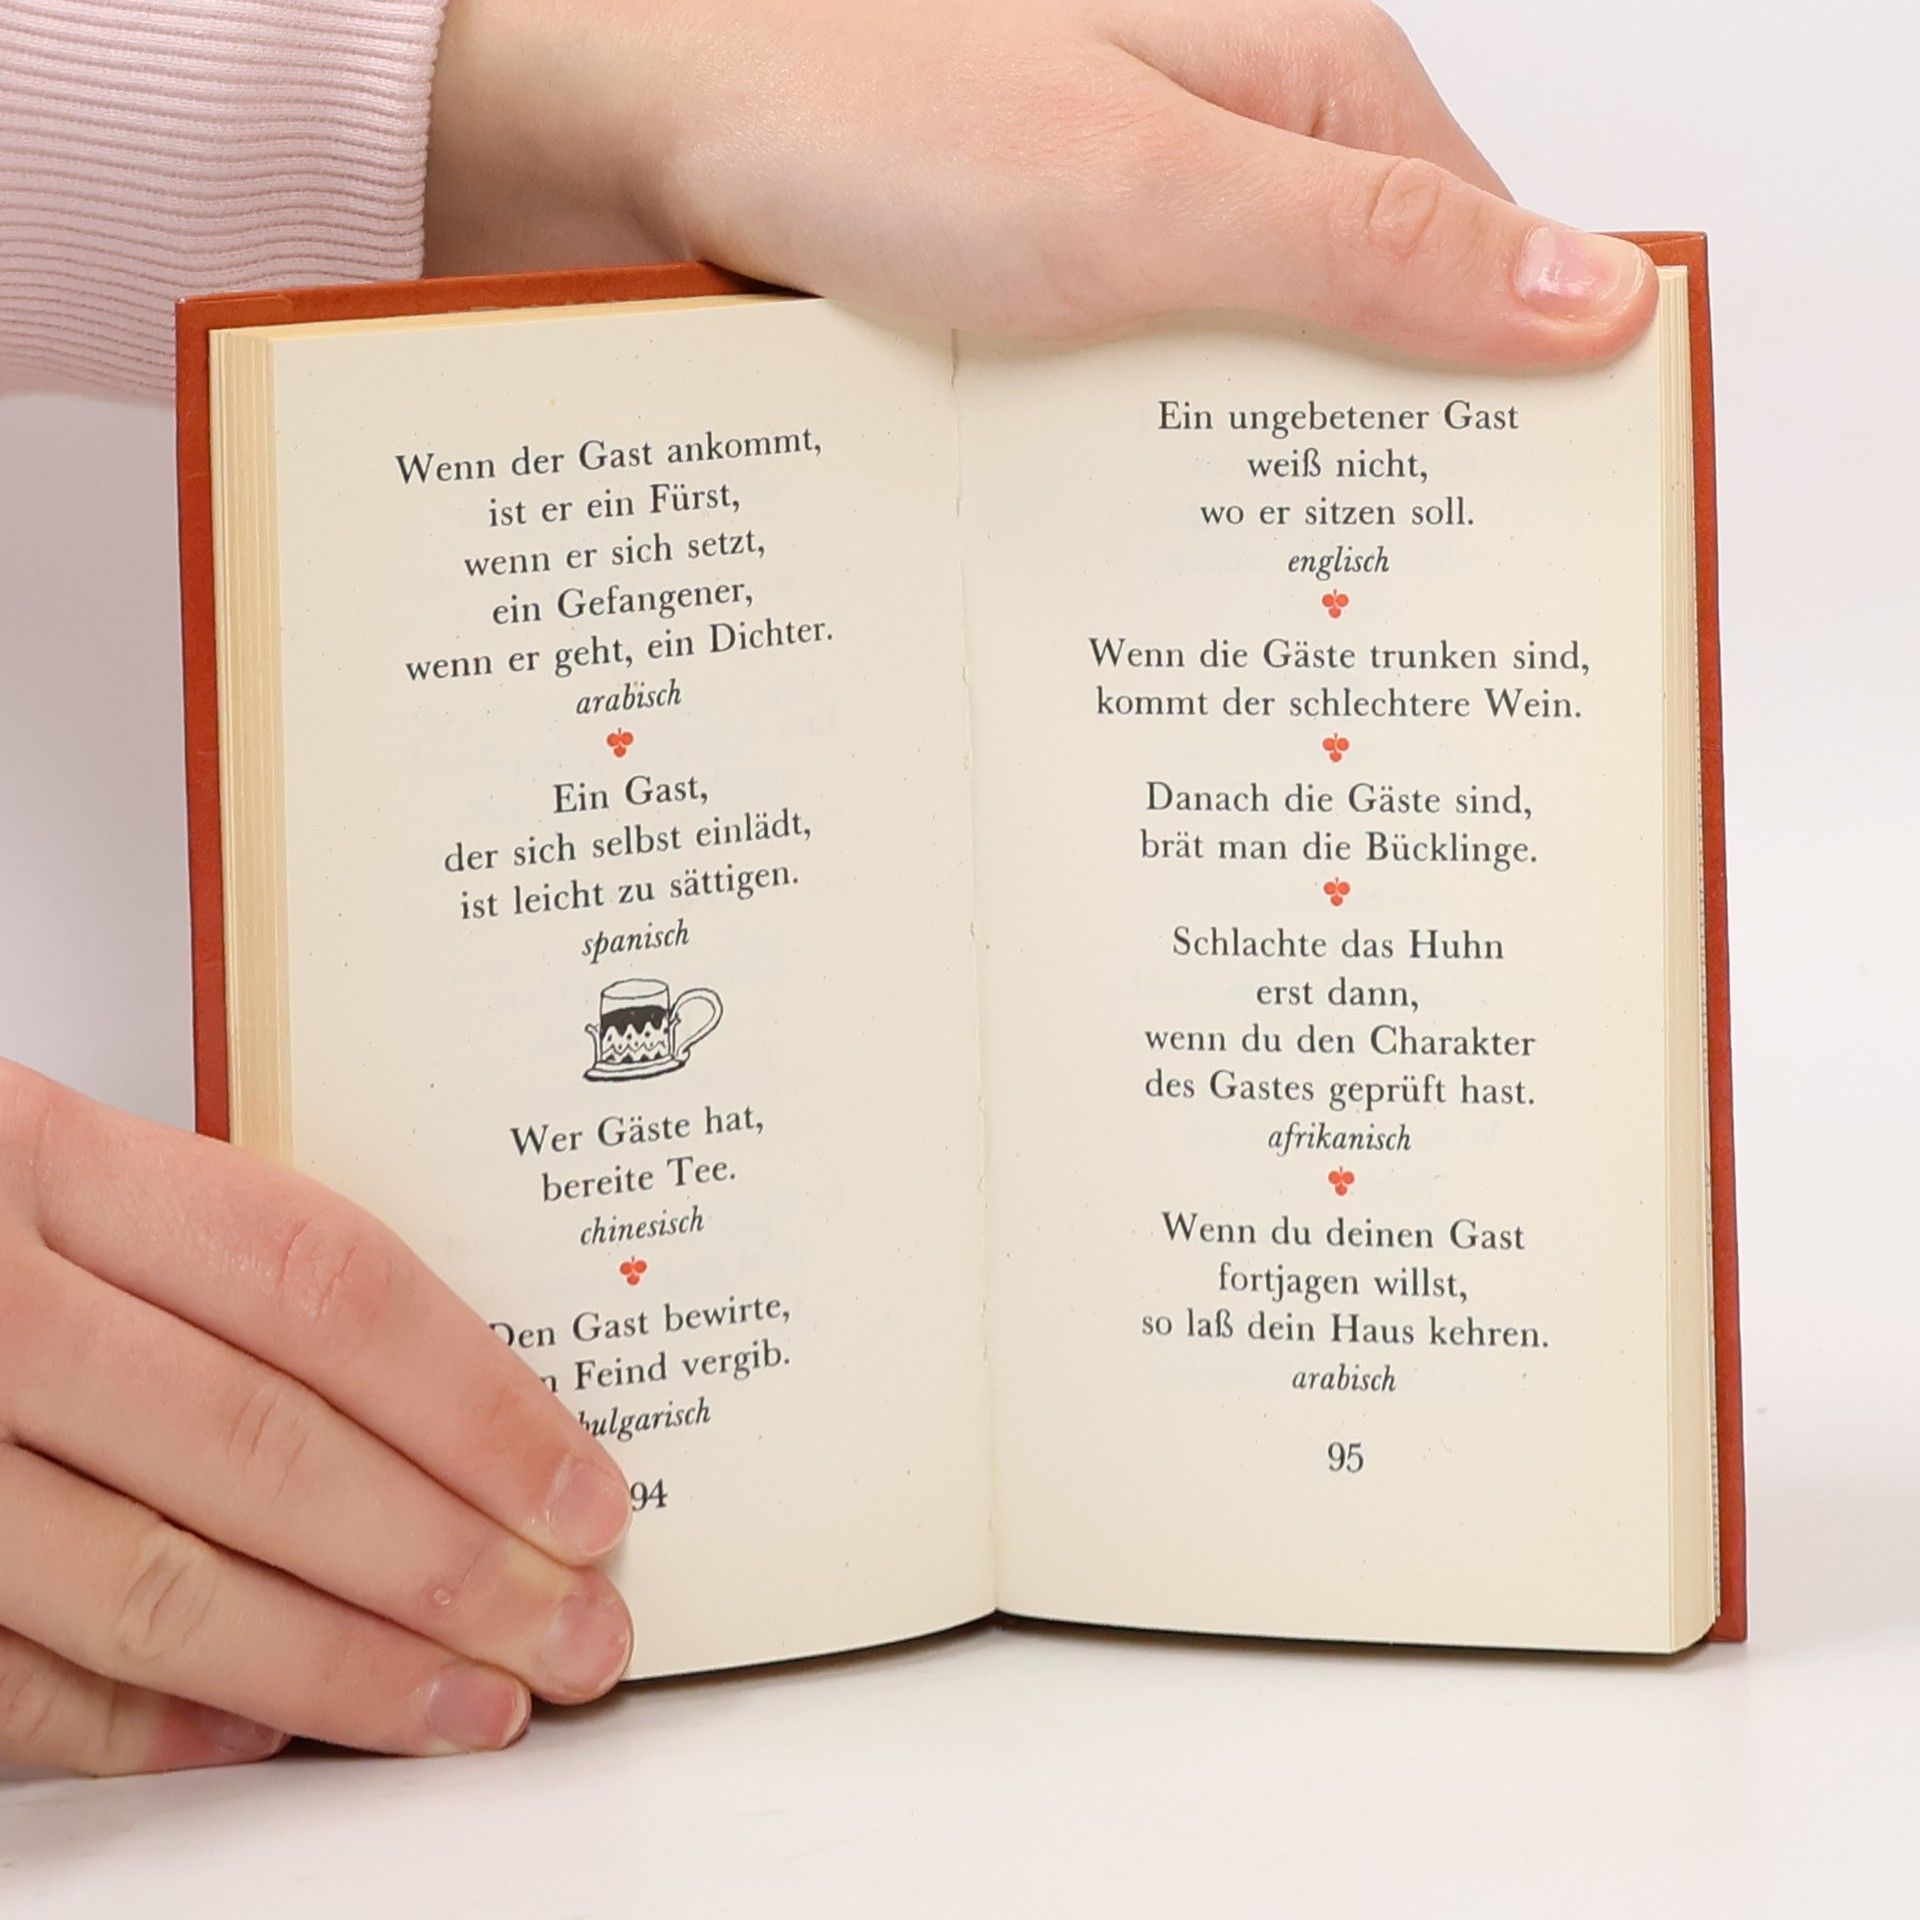 Wenn der Gast ankommt,
ist er ein Fürst,
wenn er sich setzt,
ein Gefangener,
wenn er geht, ein Dichter.
arabisch
Ein Gast,
der sich selbst einlädt,
ist leicht zu sättigen.
spanisch
Wer Gäste hat,
bereite Tee.
chinesisch
Den Gast bewirte,
Feind vergib.
bulgarisch
94
Ein ungebetener Gast
weiß nicht,
wo er sitzen soll.
englisch
Wenn die Gäste trunken sind,
kommt der schlechtere Wein.
Danach die Gäste sind,
brät man die Bücklinge.
Schlachte das Huhn
erst dann,
wenn du den Charakter
des Gastes geprüft hast.
afrikanisch
Wenn du deinen Gast
fortjagen willst,
so laß dein Haus kehren.
arabisch
95